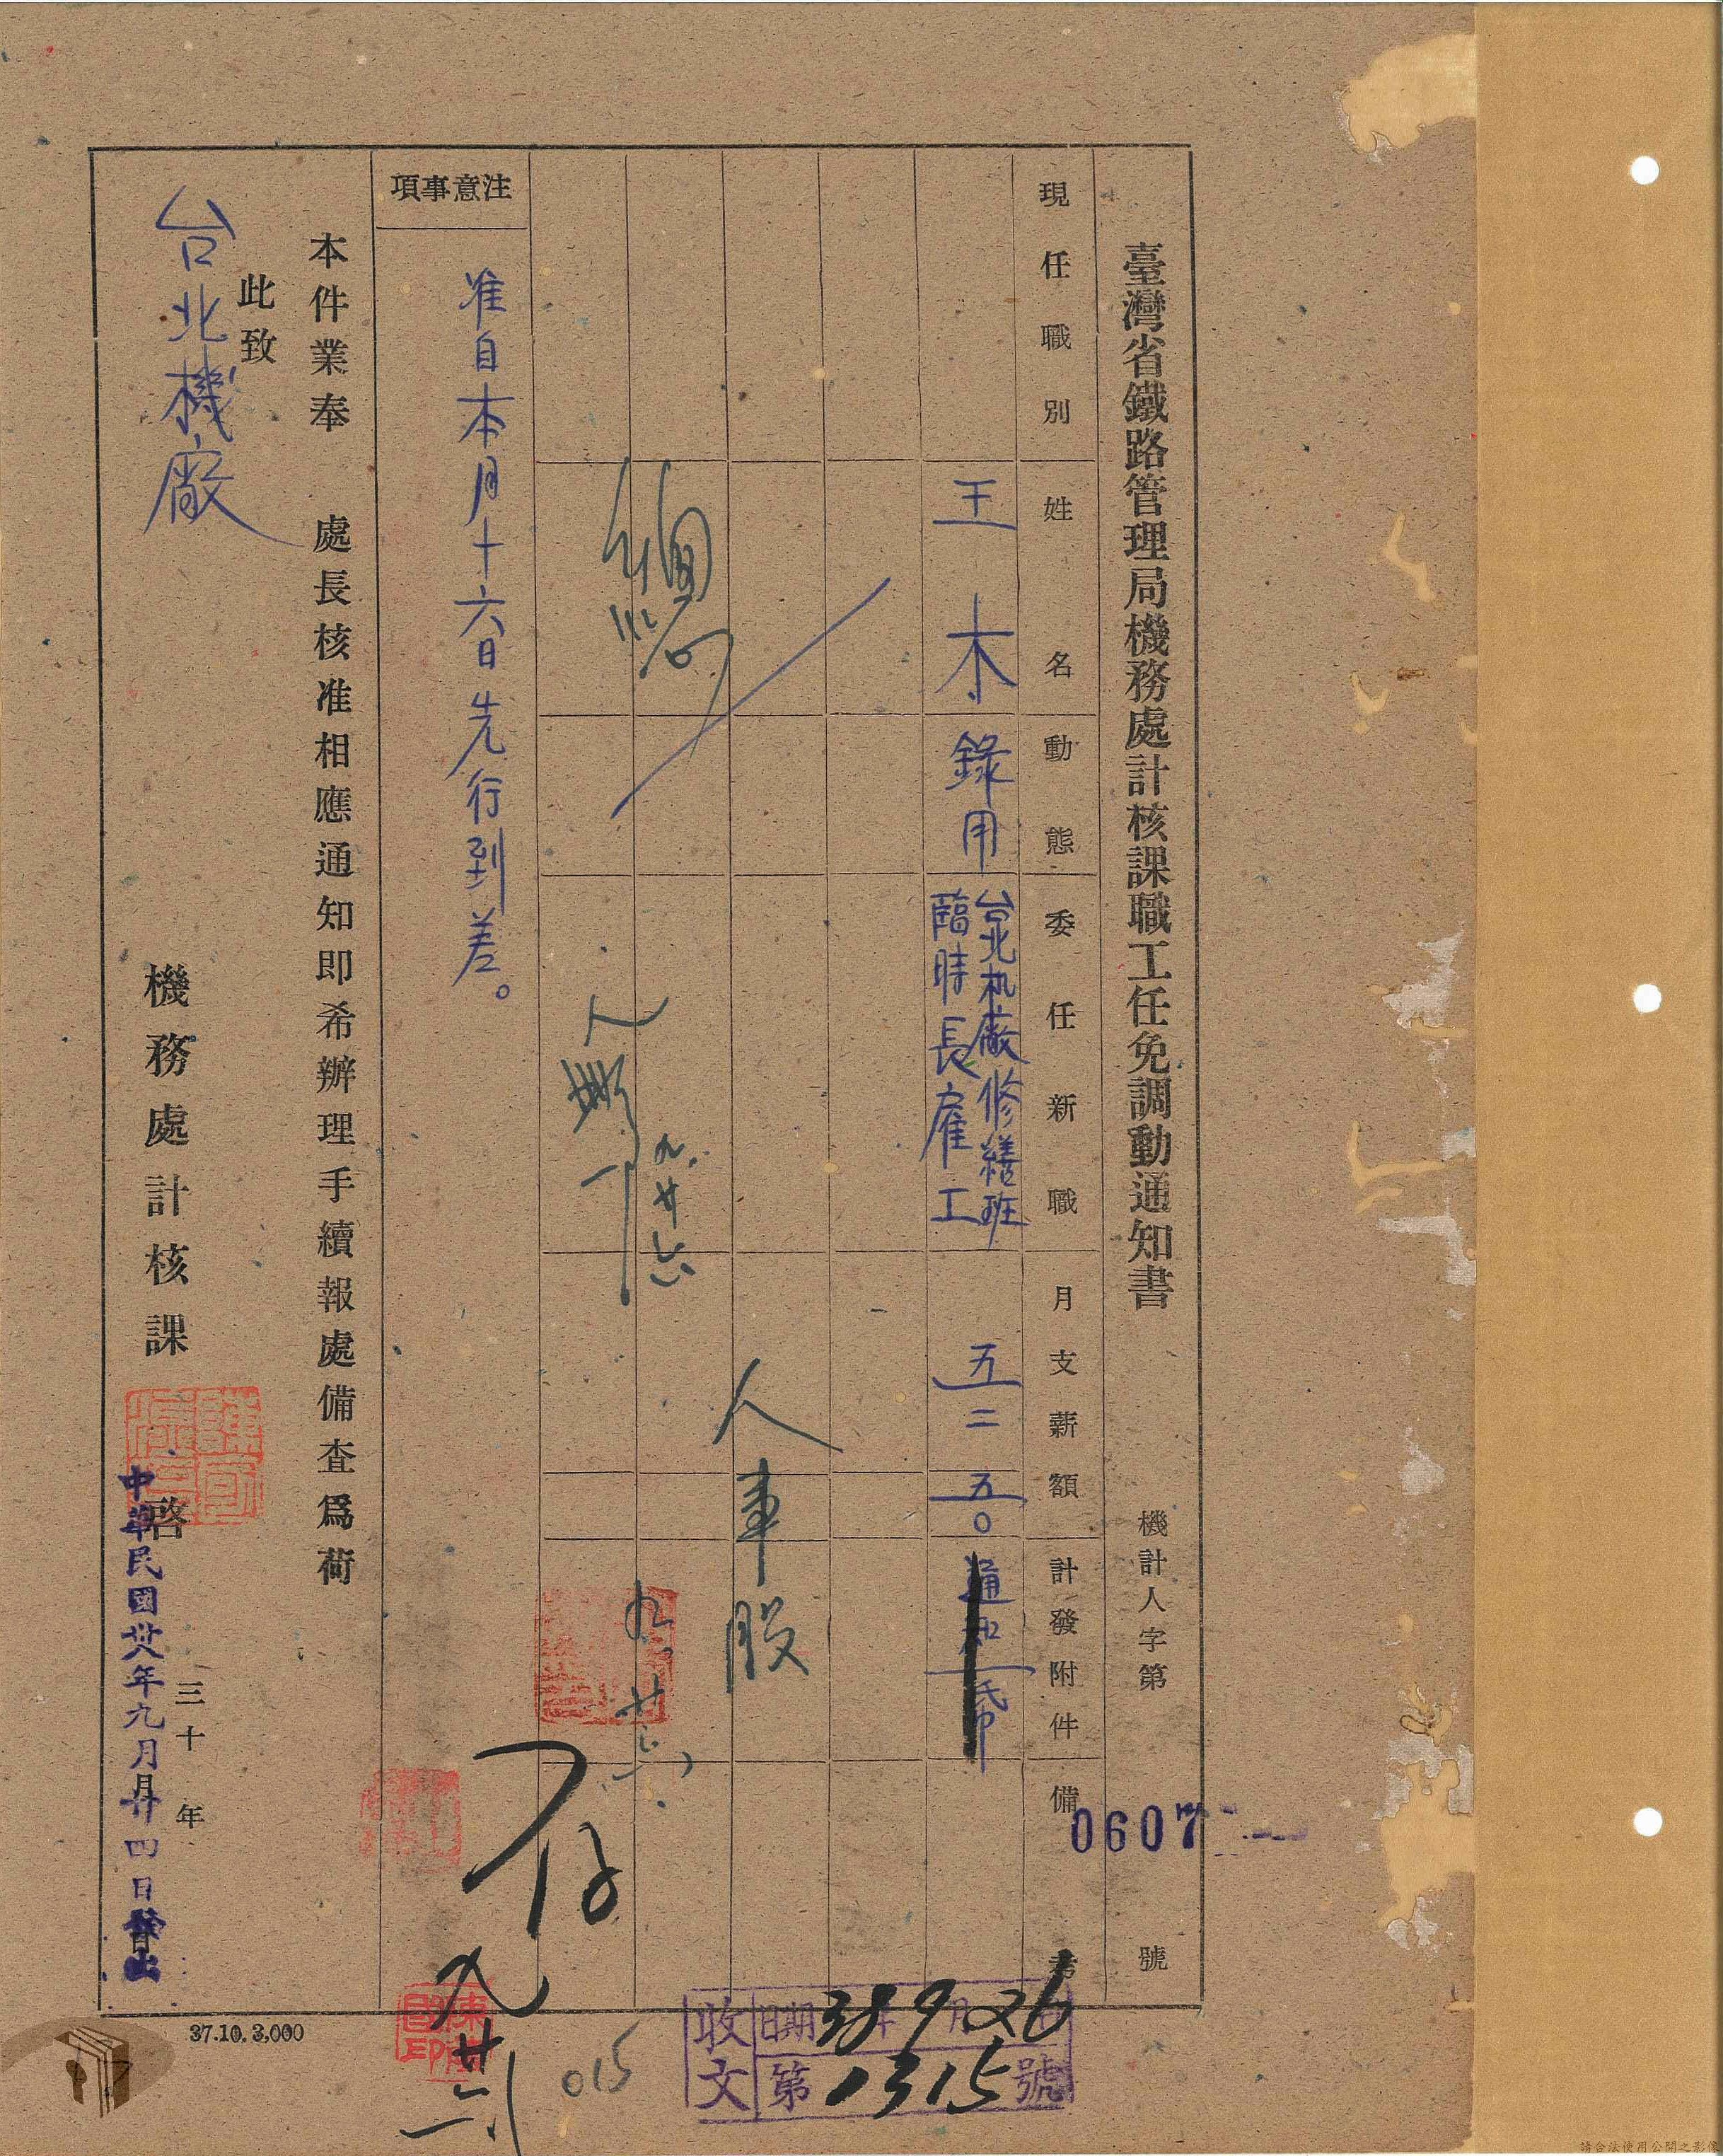 臺灣省鐵路管理局機務處計核課職工任免調動通知書
機計人字第
0607
號
現任職別
姓名
動態
委任新職
月支薪額
計發附件
備考
王木
錄用
台北机廠修繕班
臨時長雇工
五二
五〇
人事股
九廿六
九廿六
注意事項
准自本月十六日先行到差。
本件業奉 處長核准相應通知即希辦理手續報處備查爲荷
此致
台北機廠
機務處計核課 啓
三十 年 月
中華民國卅八年九月廿四日發出
37.10.3,000
存
收文
日期 38年9月26日
第1315號
015
請合法使用公開之影像